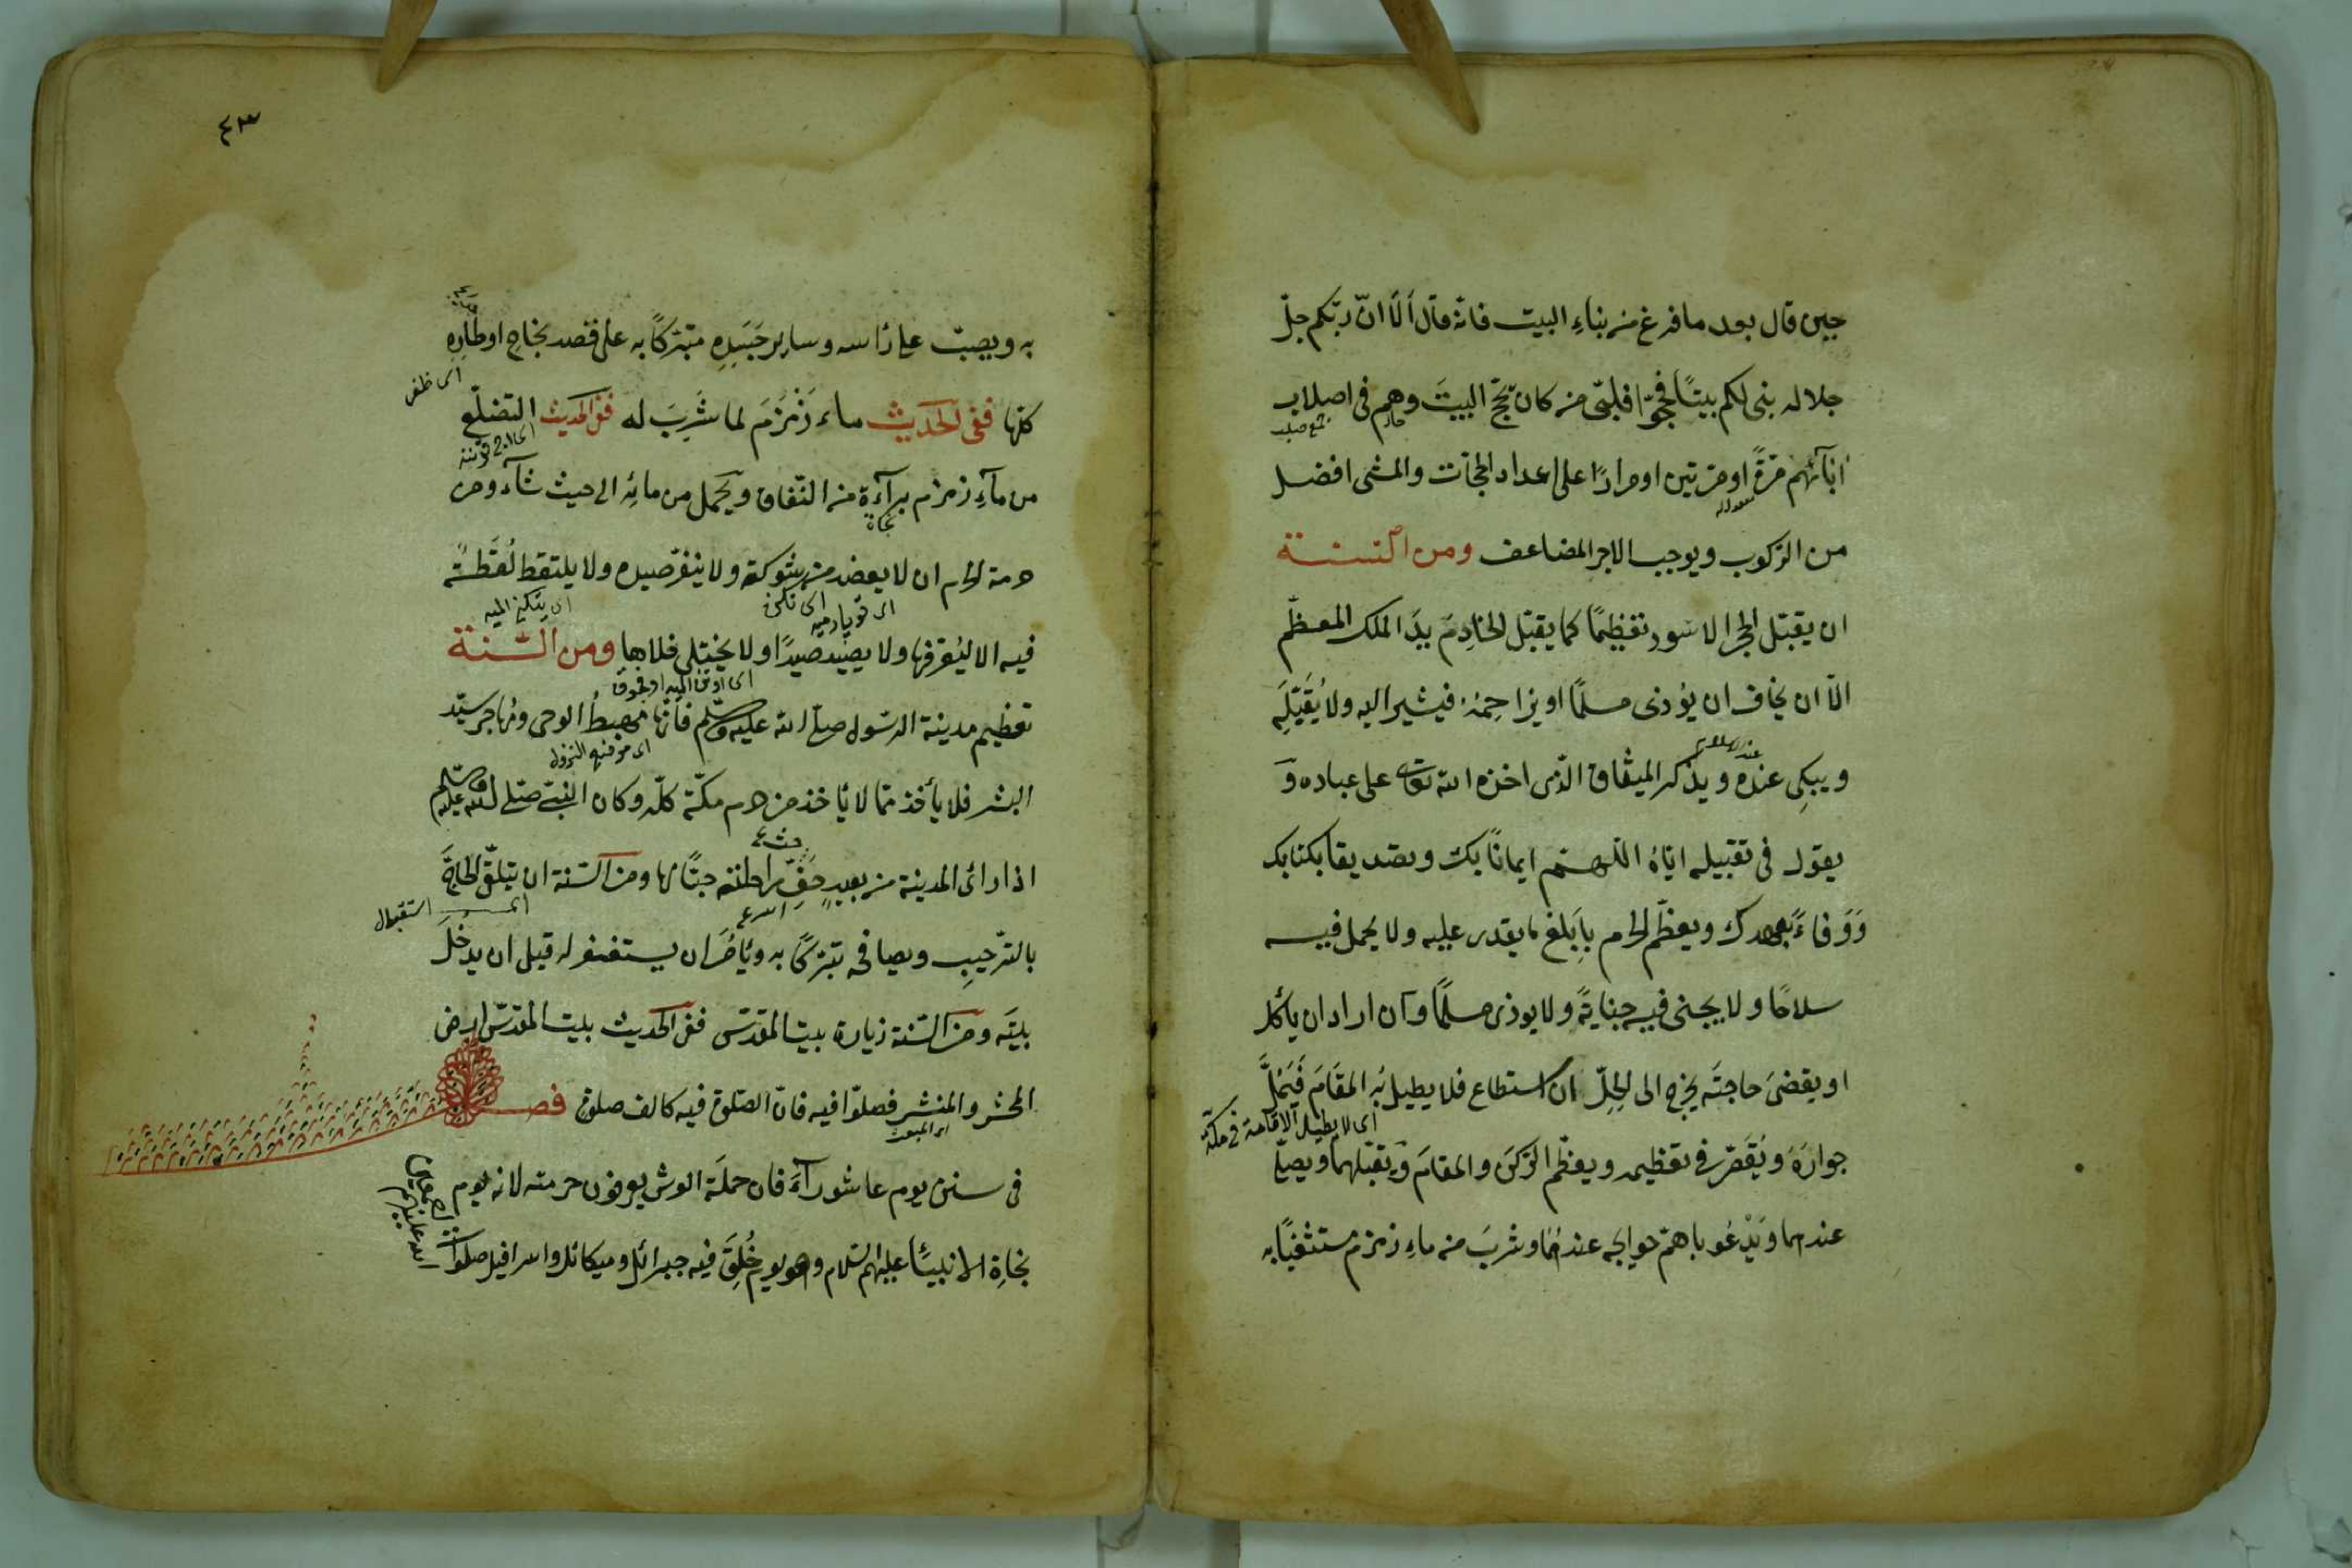 حين قال بعد ما فرغ من بناء البيت فانه قال ألا انّ ربّكم جلّ
جلاله بنى لكم بيتًا فحجّوا فلبّى من كان يحجّ البيتَ وهم فى اصلاب
جمع صلب
آبائهم مرّةً او مرتين او مرارًا على اعداد الحجّات والمشى افضل
من الركوب ويوجب الاجر المضاعف ومن السنة
ان يقبّل الحجر الاسود تعظيمًا كما يقبّل الخادِمَ يدَ الملك المعظّم
الّا ان يخاف ان يؤذى مسلمًا او يزاحمهُ فيشير اليه ولا يُقَبّلِه
ويبكِى عنده ويذكر الميثاق الّذى اخذه الله تعالى على عباده وَ
يقول فى تقبيله ايّاهُ اللّهم ايمانًا بك وتصديقا بكتابك
وَوَفاءً بعهدك ويعظّم الحرم بِاَبلغ ما يقدر عليه ولا يحمل فيه
سلاحًا ولا يجنى فيه جنايةً ولا يوذى مسلمًا وان اراد ان يأكل
او يقضىَ حاجتَه يخرج الى الحِلّ ان استطاع فلا يطيل به المقَامَ فَيَمَلَّ
اى لا يطيل الاقامة فى مكة
جوارَهُ ويُقَصّر فى تعظيمه ويعظّم الرّكنَ والمقامَ ويقبّلهما ويصلّى
عندهما ويَدْعُو باهمّ حوايجه عندهُما وشربَ من ماءِ زمزم مستشفيًا به
٤٣
به ويصبّ على رأسه وساير جَسَدِه متبرّكًا به على قصد نجاح اوطارِه
كلّها ففى الحديث ماء زَمْزَمَ لما شُرِبَ له ففى الحديث التضلّع
من مآءِ زمزم برآءة من النّفاق ويحمل من مائِه الى حيث شآء ومن
نجاة
حرمة الحرم ان لا يعضد من شوكه ولا ينفّر صيده ولا يلتقط لُقَطَتُه
فيه الا ليُعَرّفها ولا يصيد صيدًا ولا يختلى خلاها ومن السنة
تعظيم مدينة الرّسول صلى الله عليه وسلّم فانّها مهبطُ الوحى ومُهاجر سيّد
البشر فلا يأخذ ممّا لا يأخذ من حرم مكّة كلّه وكان النبىّ صلى الله عليه وسلم
اذا رأى المدينة من بعيدٍ حَفّ راحلته حبًّا لها ومن السّنة ان يتلقّى الحاجَّ
اسرع
استقبال
بالتّرحيبِ ويصافحه تبرّكًا به ويأمُرَ ان يستغفر له قبل ان يدخُلَ
بيتَه ومن السّنة زيارة بيت المقدّس ففى الحديث بيت المقدّس ارض
المحشر والمنشر فصلّوا فيه فانّ الصّلوة فيه كالف صلوة فصل
فى سنن يوم عاشورآءَ فان حملَة العرش يعرفون حرمته لانه يوم
نجاةِ الانبيآءِ عليهم السّلام وهو يوم خُلِقَ فيه جبرائل وميكائل واسرافيل صلوات
الله عليهم اجمعين